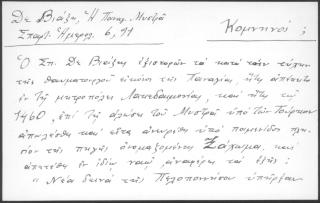 Δε Βιάζη, Ἡ Παναγ. Μυστρᾶ
Σπαρτ. Ἡμερολ. 6, 91
Κομνηνοί ;
Ὁ Σπ. Δε Βιάζης ἐξιστορῶν τὰ κατὰ τὴν τύχην
τῆς θαυματουργοῦ εἰκόνος τῆς Παναγίας, ἥτις ἀπέκειτο
ἐν τῇ μητροπόλει Λακεδαιμονίας, καὶ ἥτις τῷ
1460, ἐπὶ τῇ ἁλώσει τοῦ Μυστρᾶ ὑπὸ τῶν Τούρκων
ἀπωλέσθη καὶ εἶτα ἀνευρέθη ὑπὸ ποιμένων πλη-
σίον τῆς πηγῆς ὀνομαζομένης Ζάχωμα, καὶ
ἀπετέθη ἐν ἰδίῳ ναῷ, ἀναφέρει τὰ ἑξῆς :
" Νέα δεινὰ τῆς Πελοποννήσου ὑπῆρξαν